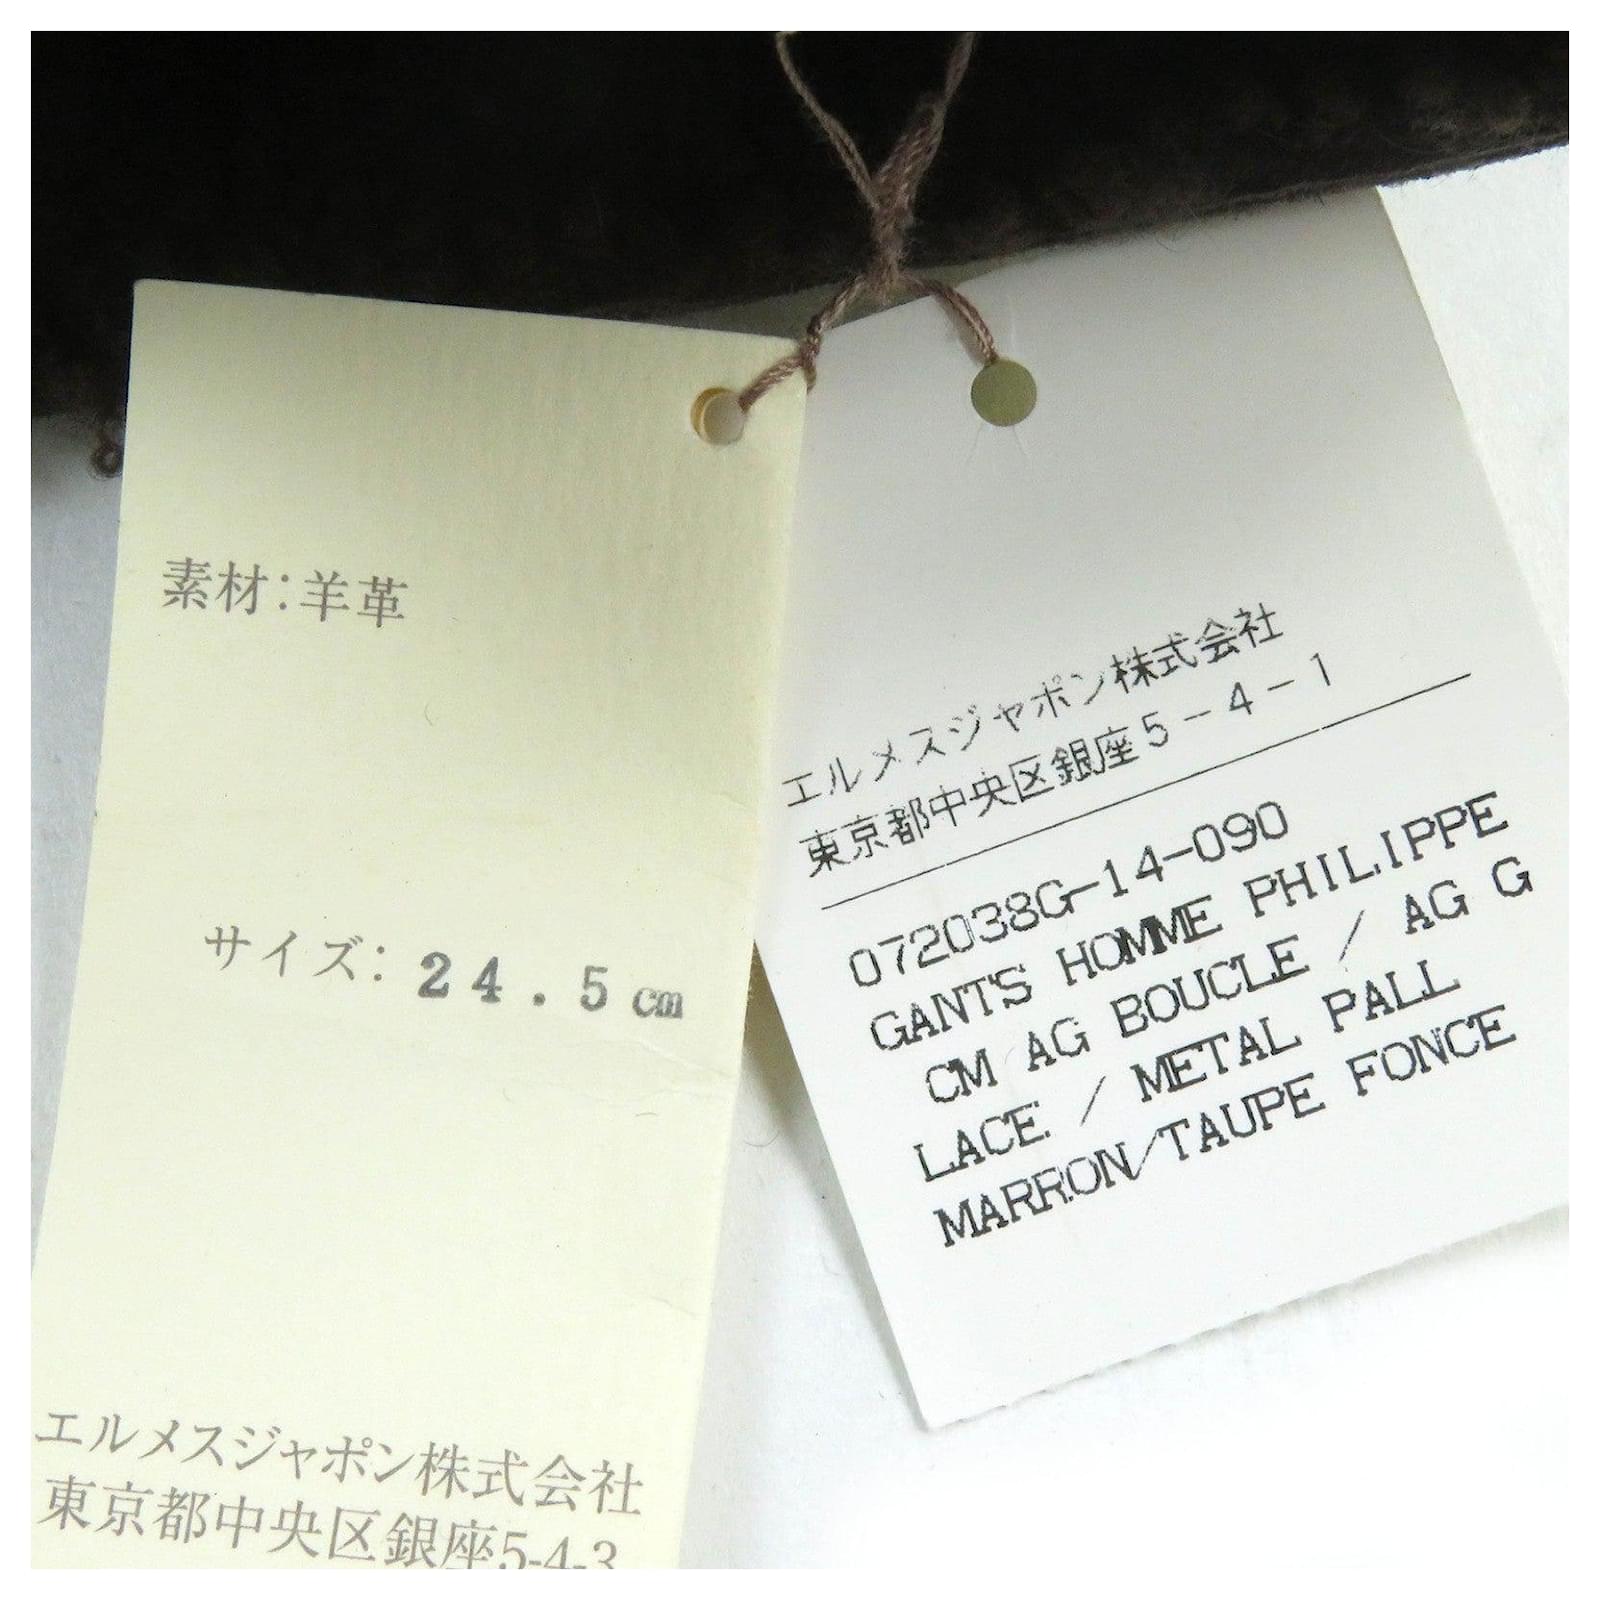 素材:羊革
サイズ: 24.5cm
エルメスジャポン株式会社
東京都中央区銀座5-4-3
エルメスジャポン株式会社
東京都中央区銀座5-4-1
072038G-14-090
GANTS HOMME PHILIPPE
CM AG BOUCLE / AG G
LACE / METAL PALL
MARRON/TAUPE FONCE